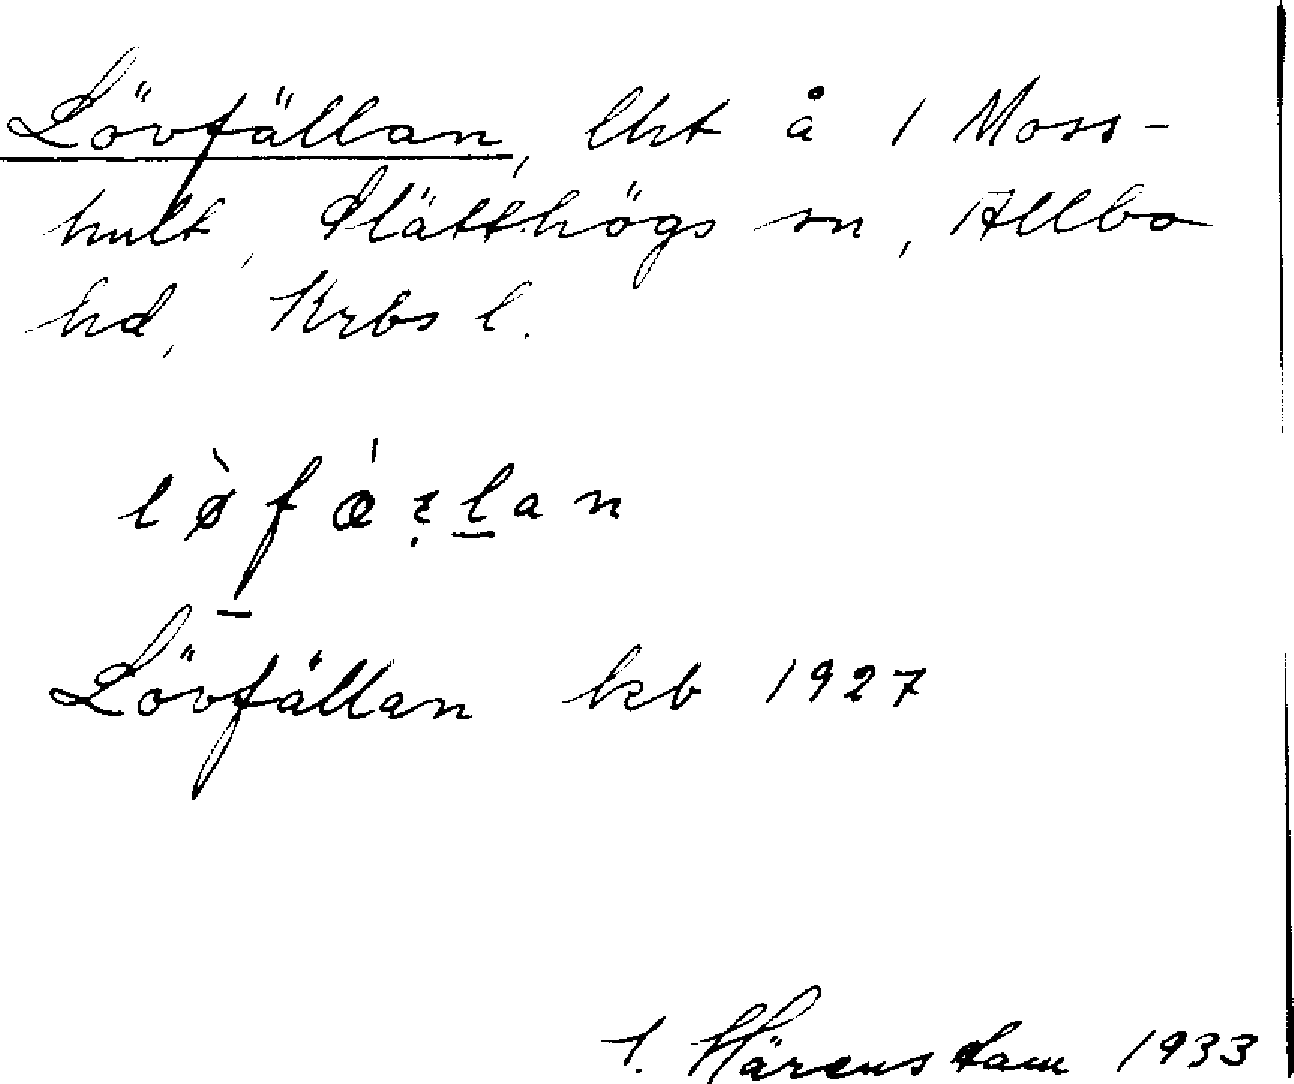 Lövfällan, lht å 1 Moss-
hult, Slätthögs sn, Allbo
hd, Krbs l.
Lövfällan kb 1927
Härenstam 1933